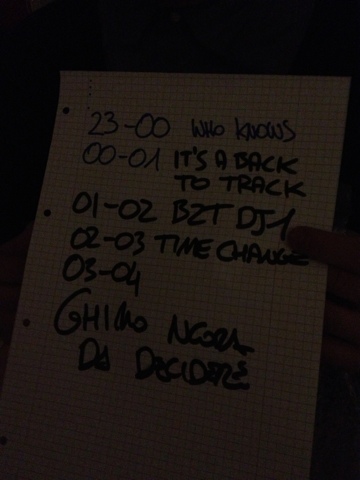 23-00 WHO KNOWS
00-01 IT'S A BACK
TO TRACK
01-02 BZT DJ1
02-03 TIME CHANGE
03-04
DA DECIDERE